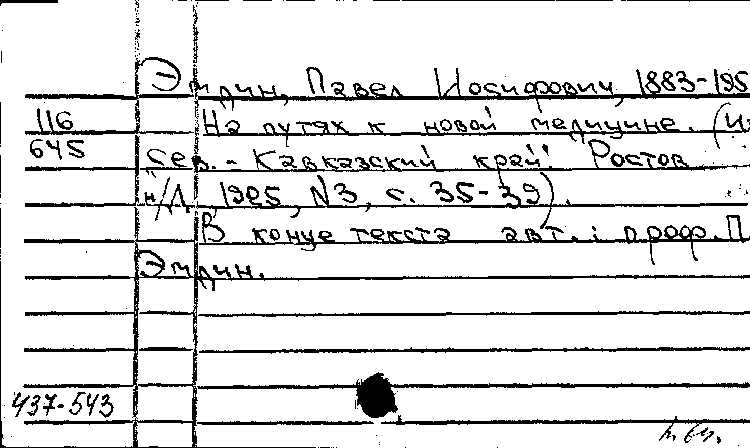 Эмдин, Павел Иосифович, 1883-195
116 На путях к новой медицине. (Из
645 "Сев.-Кавказский край" Ростов
н/Д, 1925, N3, с. 35-39).
В конце текста авт.: проф. П.
Эмдин.
437-543